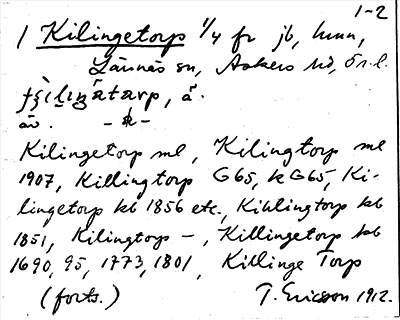 1-2
1 Kilingetorp 1/4 fr jb, hmn,
Lännäs sn, Askers hd, Ör. l.
av. -
Kilingetorp ml, Kilingtorp ml
1907, Killingtorp G65, k G65, Ki-
lingetorp kb 1856 etc., Kihlingtorp kb
1851, Kilingtorp -, Killingetorp kb
1690, 95, 1773, 1801, Killinge Torp
(forts.) T. Ericsson 1912.